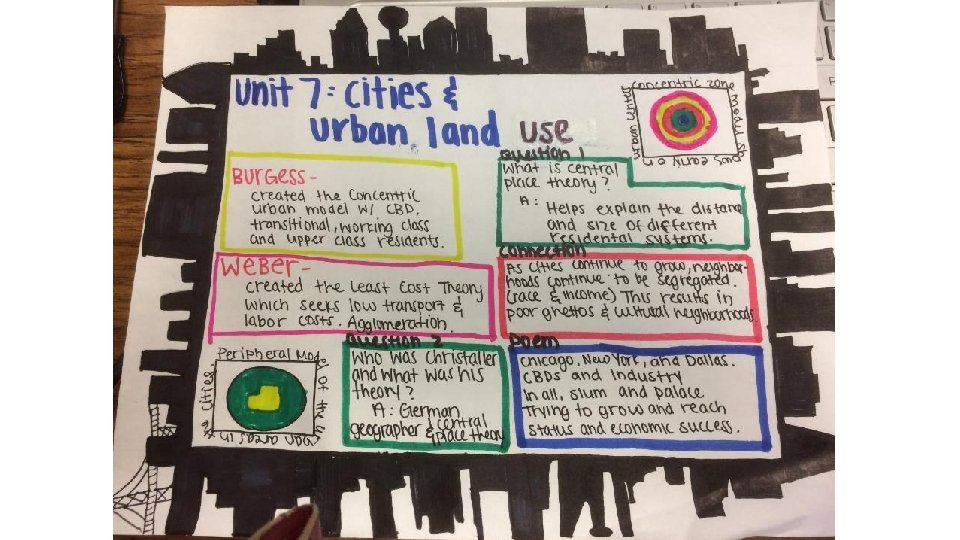 Unit 7: Cities &
Urban land use
Concentric zone
BURGESS-
created the Concentric
urban model w/ CBD,
transitional, working class
and upper class residents.
Question 1
What is central
place theory?
A: Helps explain the distance
and size of different
residental systems.
WEBER-
created the Least Cost Theory
which seeks low transport &
labor costs. Agglomeration.
Connection
As cities continue to grow, neighbor-
hoods continue to be segregated.
(race & income) This results in
poor ghettos & cultural neighborhoods
Peripheral Model of the
cities.
Question 2
Who was Christaller
and what was his
theory?
A: German
geographer & central
place theory
Poem
Chicago, New York, and Dallas.
CBDs and Industry
In all, slum and palace
Trying to grow and reach
status and economic success.